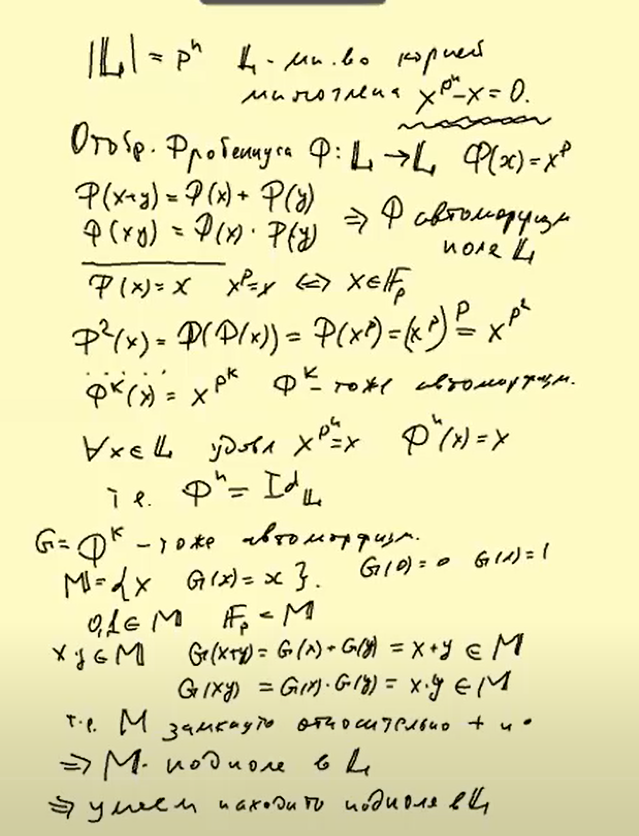 |𝕃| = pⁿ 𝕃 - мн.во корней
многочлена x^{pⁿ}-x=0.
Отобр. Фробениуса Φ: 𝕃 → 𝕃 Φ(x)=x^p
Φ(x+y) = Φ(x) + Φ(y)
Φ(xy) = Φ(x) · Φ(y) ⇒ Φ автоморфизм поля 𝕃
Φ(x) = x x^p=x ⇔ x∈𝔽_p
Φ²(x) = Φ(Φ(x)) = Φ(x^p) = (x^p)^p = x^{p²}
Φ^k(x) = x^{p^k} Φ^k - тоже автоморфизм.
∀x∈𝕃 удовл x^{pⁿ}=x Φⁿ(x) = x
т.е. Φⁿ = Id_𝕃
G = Φ^k - тоже автоморфизм.
M = {x G(x) = x}. G(0) = 0 G(1) = 1
0,1 ∈ M 𝔽_p ⊂ M
x y ∈ M G(x+y) = G(x) + G(y) = x+y ∈ M
G(xy) = G(x)·G(y) = x·y ∈ M
т.е. M замкнуто относительно + и ·
⇒ M - подполе в 𝕃
⇒ умеем находить подполе в 𝕃